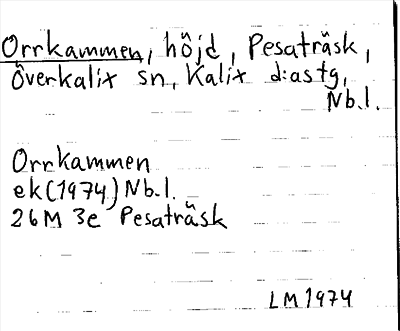 Orrkammen, höjd, Pesaträsk,
Överkalix sn, Kalix d:astg,
Nb.l.
Orrkammen
ek(1974)Nb.l.
26M 3e Pesaträsk
LM1974